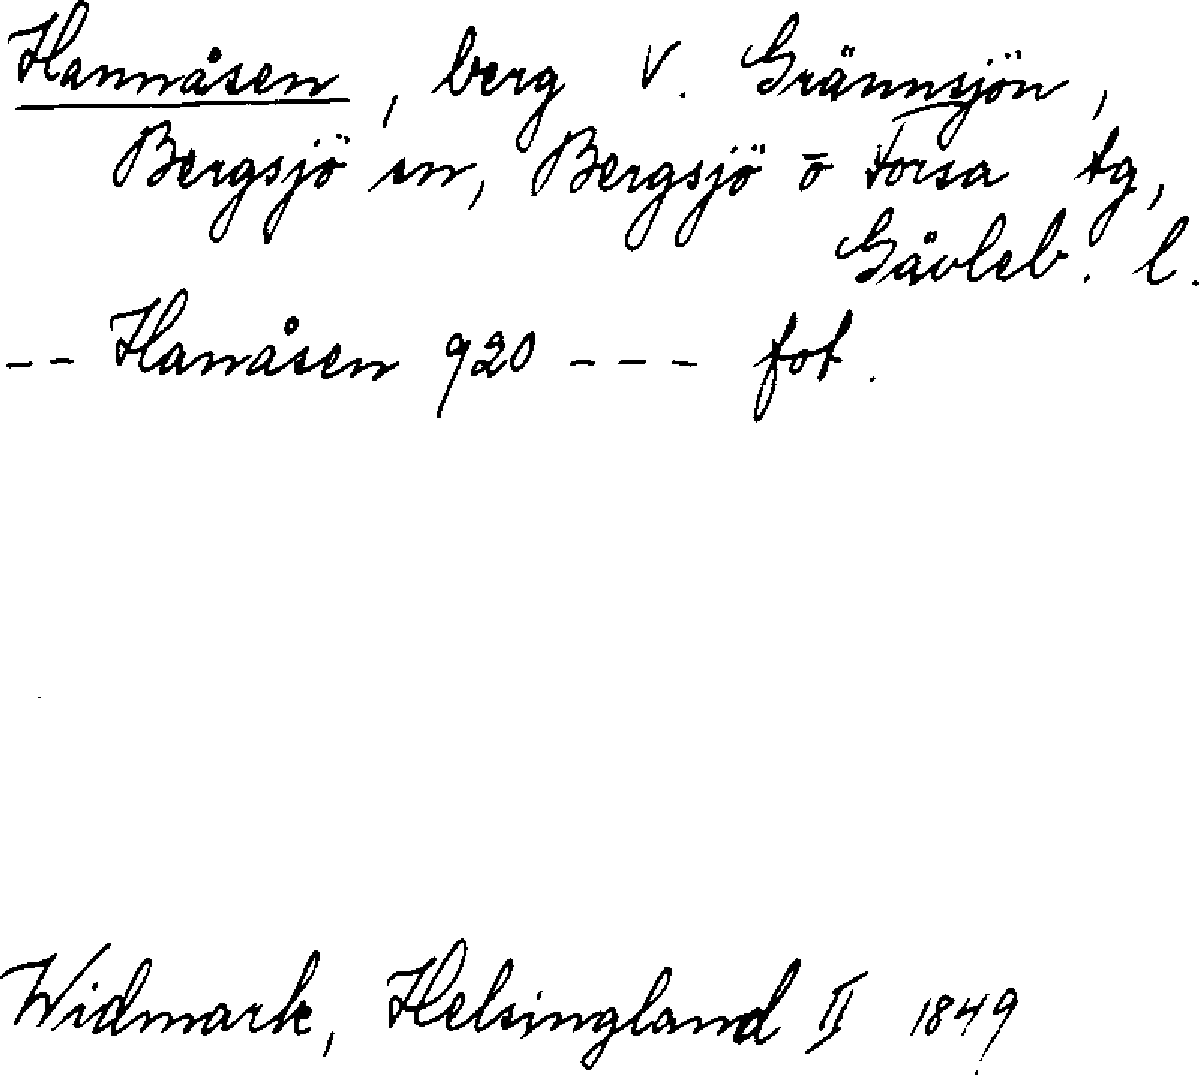 Hannåsen, berg V. Grännsjön,
Bergsjö sn, Bergsjö o Forsa tg,
Gävleb. l.
-- Hanåsen 920 --- fot.
Widmark, Helsingland II 1849